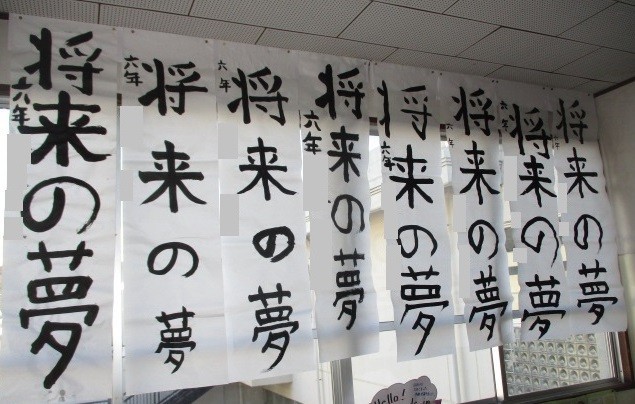 将来の夢
六年
将来の夢
六年
将来の夢
六年
将来の夢
六年
将来の夢
六年
将来の夢
六年
将来の夢
六年
将来の夢
六年
Hello!